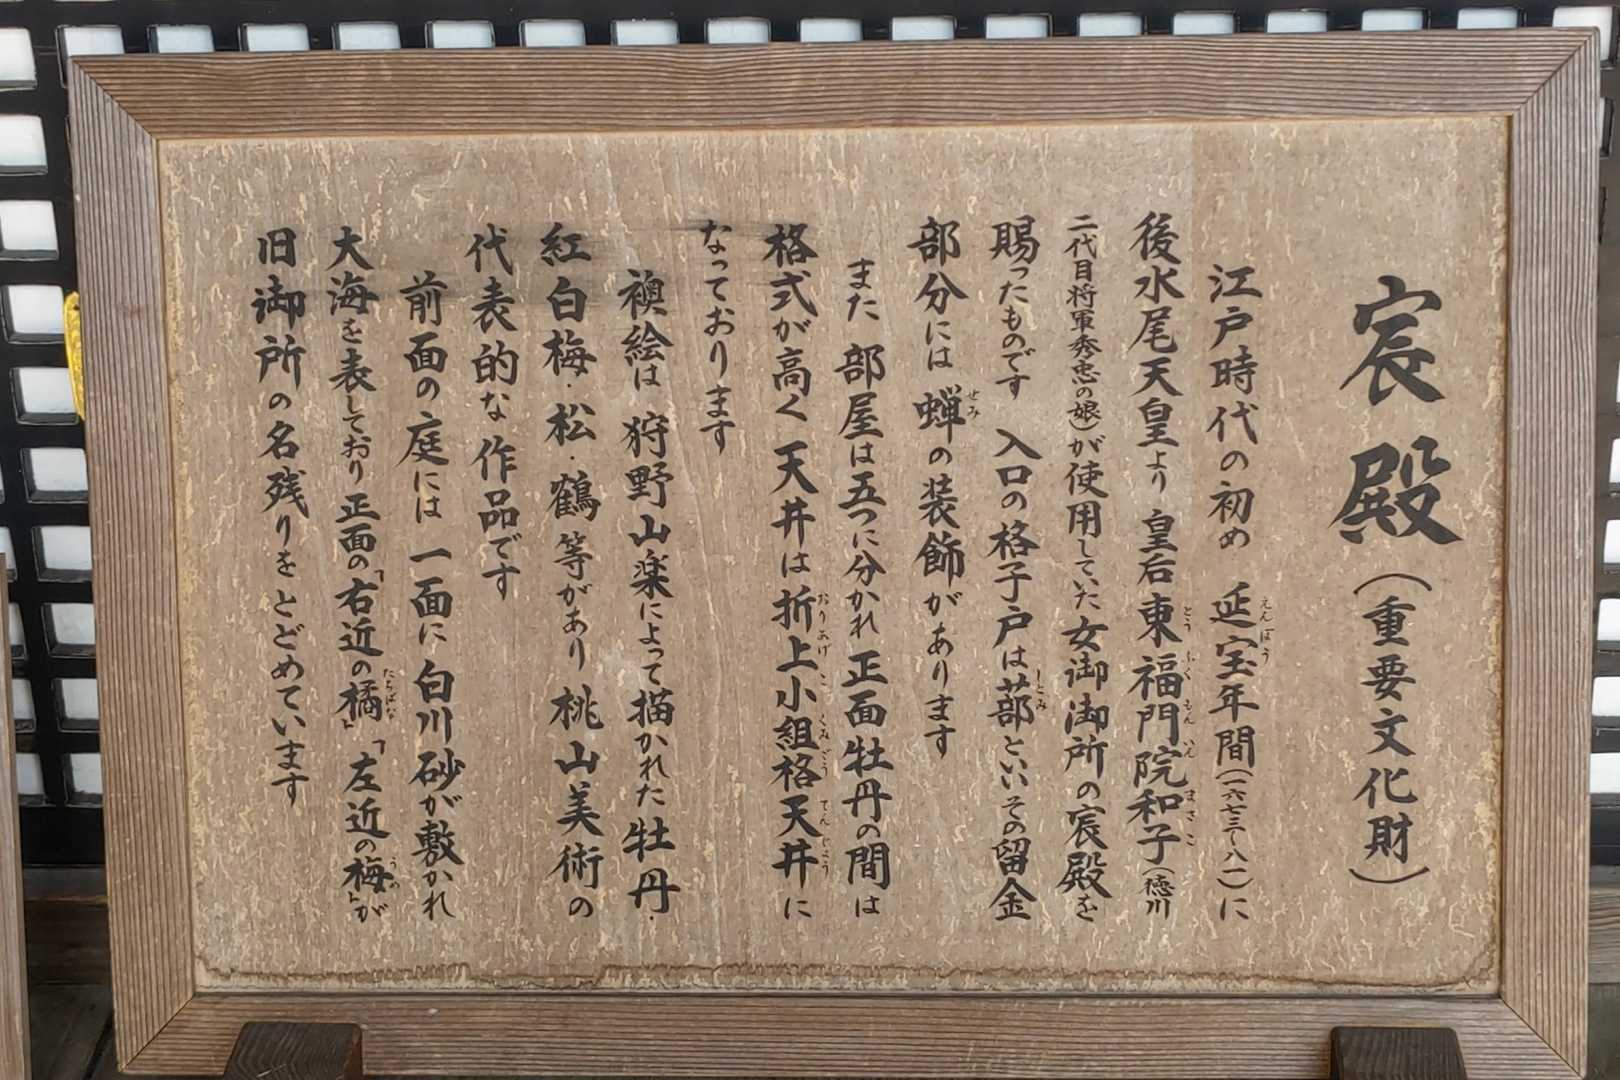 宸殿(重要文化財)
江戸時代の初め 延宝年間(一六七三〜八一)に
後水尾天皇より 皇后東福門院和子(徳川
二代目将軍秀忠の娘)が使用していた女御御所の宸殿を
賜ったものです 入口の格子戸は蔀といいその留金
部分には 蝉の装飾があります
また 部屋は五つに分かれ正面牡丹の間は
格式が高く 天井は折上小組格天井に
なっております
襖絵は 狩野山楽によって描かれた牡丹・
紅白梅・松・鶴等があり 桃山美術の
代表的な作品です
前面の庭には 一面に白川砂が敷かれ
大海を表しており正面の「右近の橘」「左近の梅」が
旧御所の名残りをとどめています